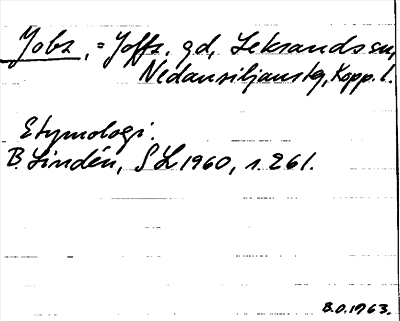 Jobs, = Joffs. gd, Leksands sn,
Nedansiljans tg, Kopp. l.
Etymologi.
B. Lindén, SL 1960, s. 261.
B.O. 1963.